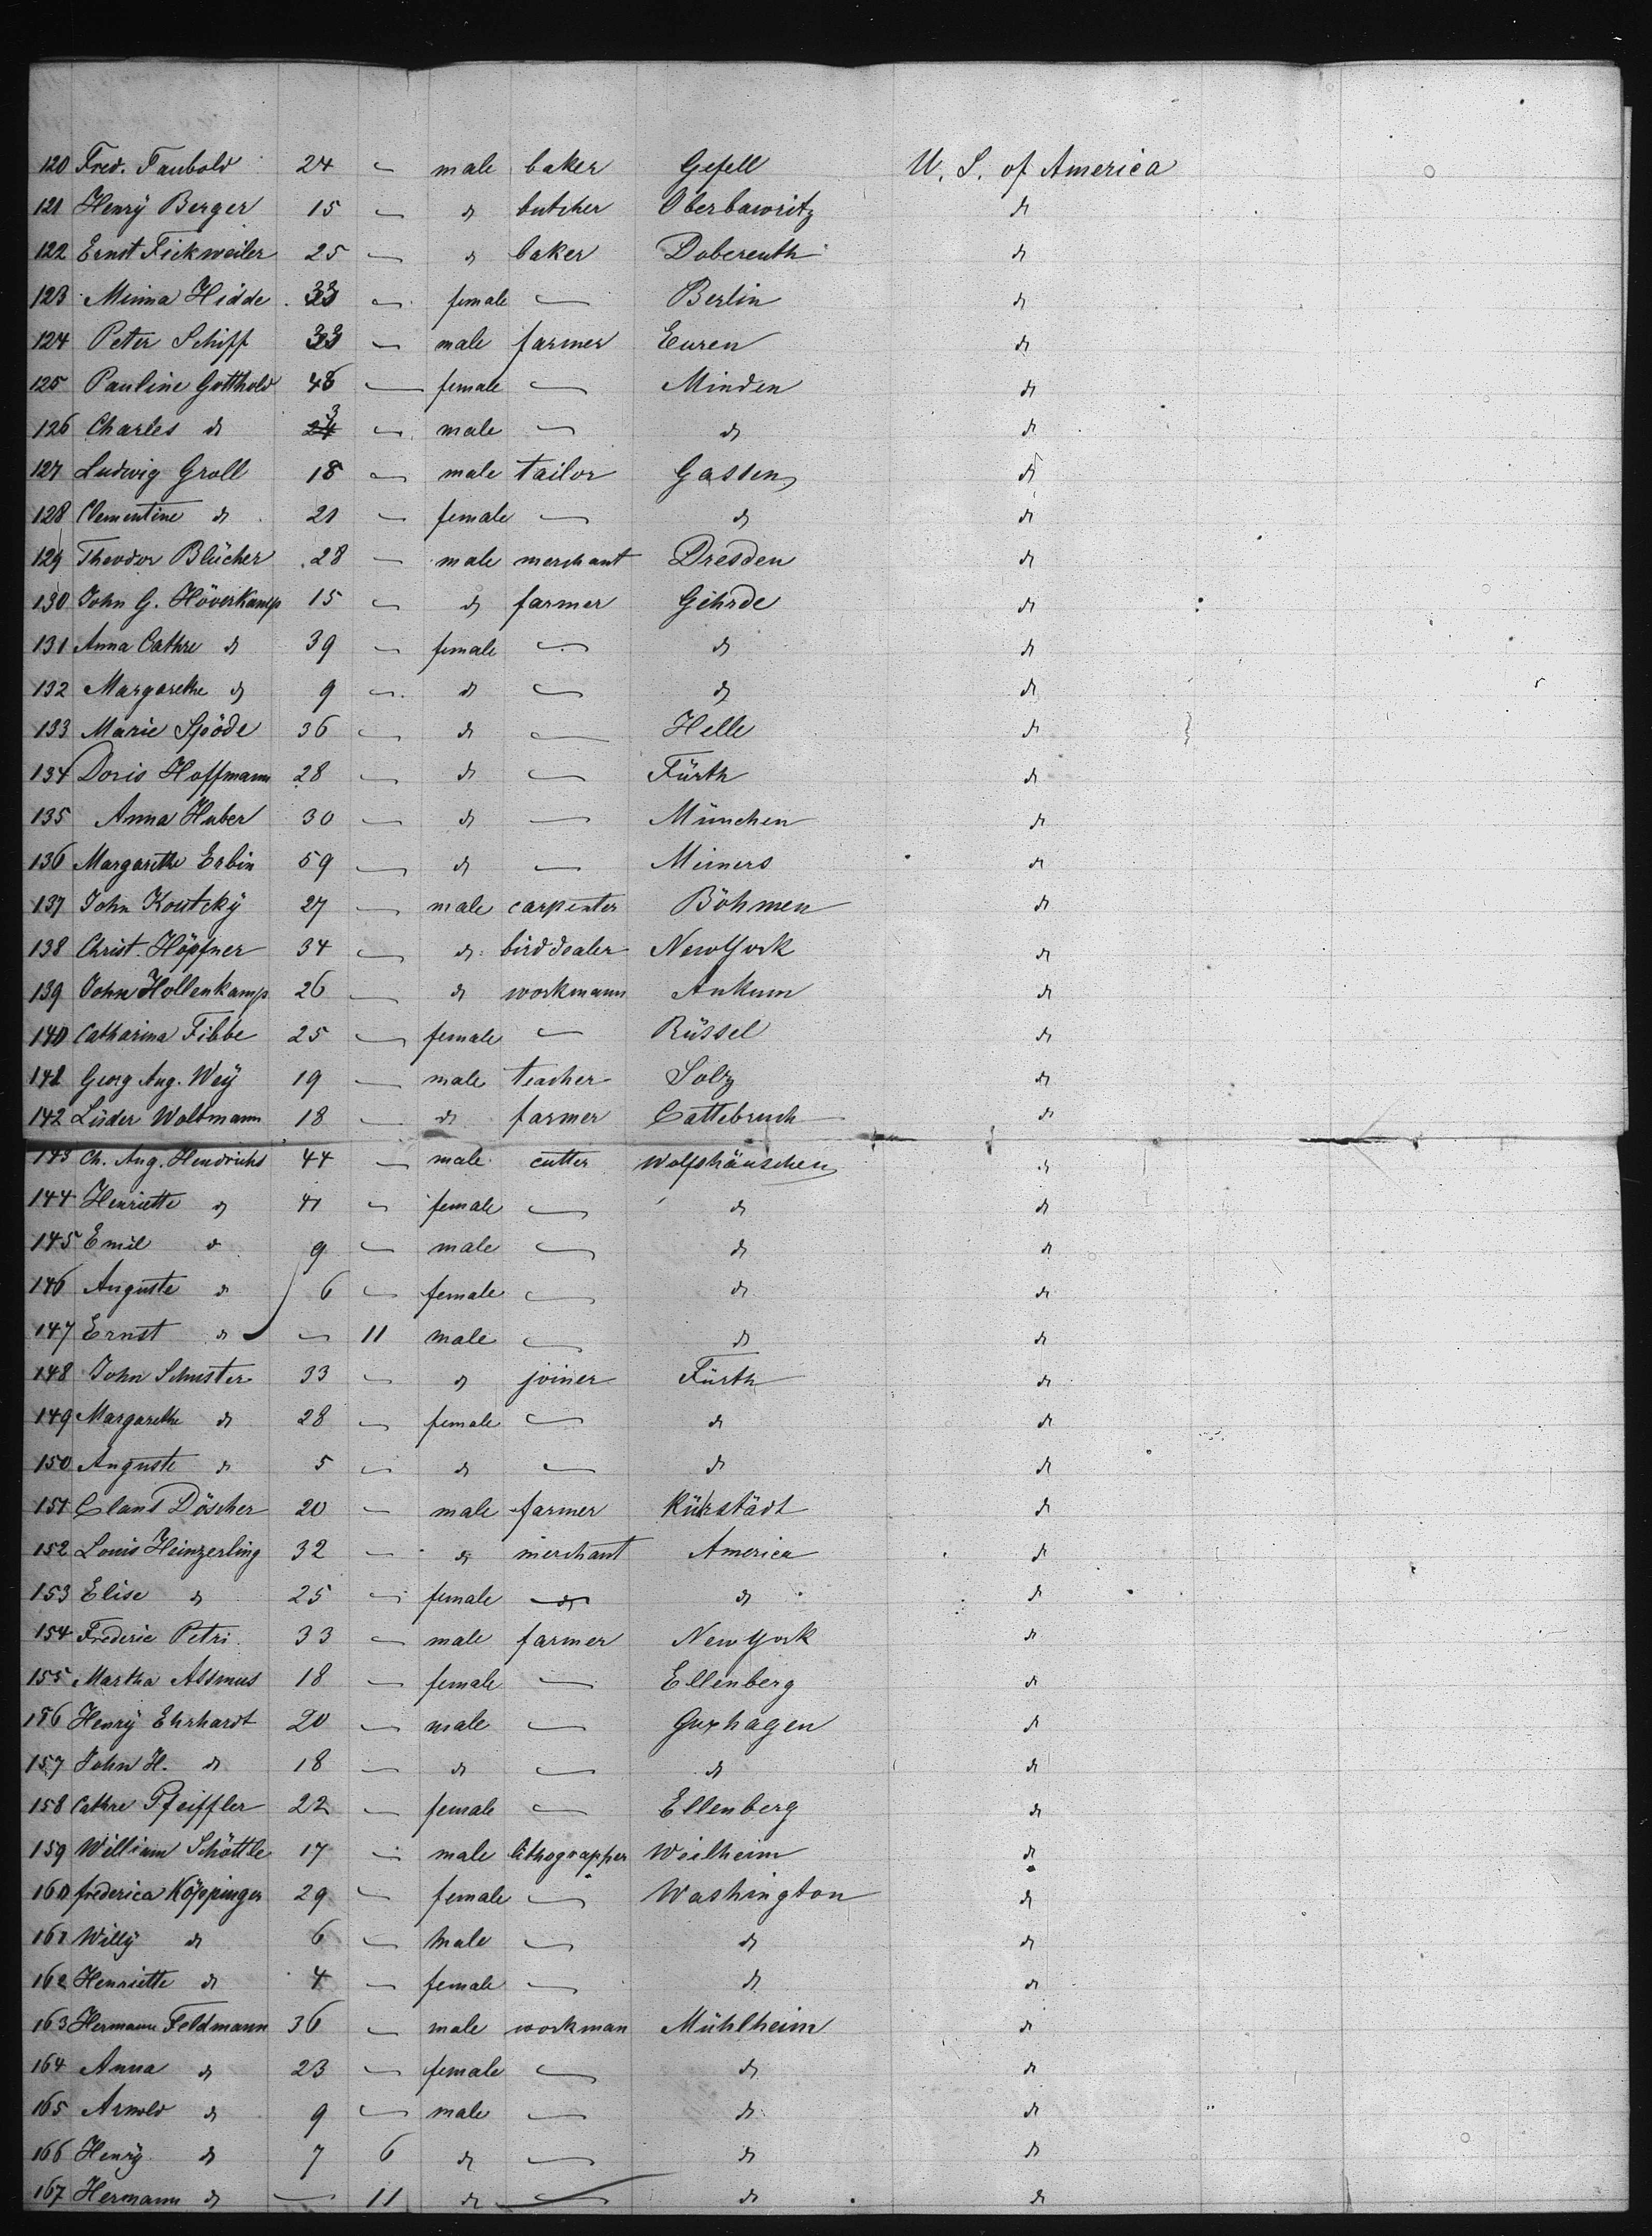 120 Fred. Faubold 24 — male baker Gefell U. S. of America
121 Henry Berger 15 — do butcher Oberbawritz do
122 Ernst Fickweiler 25 — do baker Dobereuth do
123 Minna Hidde 33 — female — Berlin do
124 Peter Schiff 33 — male farmer Euren do
125 Pauline Gotthold 48 — female — Minden do
126 Charles do 3 — male — do do
127 Ludwig Groll 18 — male tailor Gassen do
128 Clementine do 21 — female — do do
129 Theodor Blücher 28 — male merchant Dresden do
130 John G. Höverkamp 15 — do farmer Gehrde do
131 Anna Cathre do 39 — female — do do
132 Margarethe do 9 — do — do do
133 Marie Spöde 36 — do — Helle do
134 Doris Hoffmann 28 — do — Fürth do
135 Anna Huber 30 — do — München do
136 Margarethe Erbin 59 — do — Mimers do
137 John Koutcky 27 — male carpenter Böhmen do
138 Christ. Höpfner 34 — do birddealer New York do
139 John Hollenkamp 26 — do workmann Ankum do
140 Catharina Fibbe 25 — female — Rüssel do
141 Georg Aug. Wey 19 — male teacher Solz do
142 Lüder Woltmann 18 — do farmer Cattebruch do
143 Ch. Aug. Hendrichs 44 — male cutter Wolfshäuschen do
144 Henriette do 41 — female — do do
145 Emil do 9 — male — do do
146 Auguste do 6 — female — do do
147 Ernst do — 11 male — do do
148 John Schuster 33 — do joiner Fürth do
149 Margarethe do 28 — female — do do
150 Auguste do 5 — do — do do
151 Claus Döscher 20 — male farmer do
152 Louis Heinzerling 32 — do merchant America do
153 Elise do 25 — female — do do
154 Frederic Petri 33 — male farmer New York do
155 Martha Assmus 18 — female — Ellenberg do
156 Henry Ehrhardt 20 — male — Guxhagen do
157 John H. do 18 — do — do do
158 Cathre Pfeiffler 22 — female — Ellenberg do
159 William Schöttle 17 — male lithographer Weilheim do
160 frederica Köppinger 29 — female — Washington do
161 Willy do 6 — male — do do
162 Henriette do 4 — female — do do
163 Hermann Feldmann 36 — male workman Mühlheim do
164 Anna do 23 — female — do do
165 Arnold do 9 — male — do do
166 Henry do 7 6 do — do do
167 Hermann do — 11 do — do do